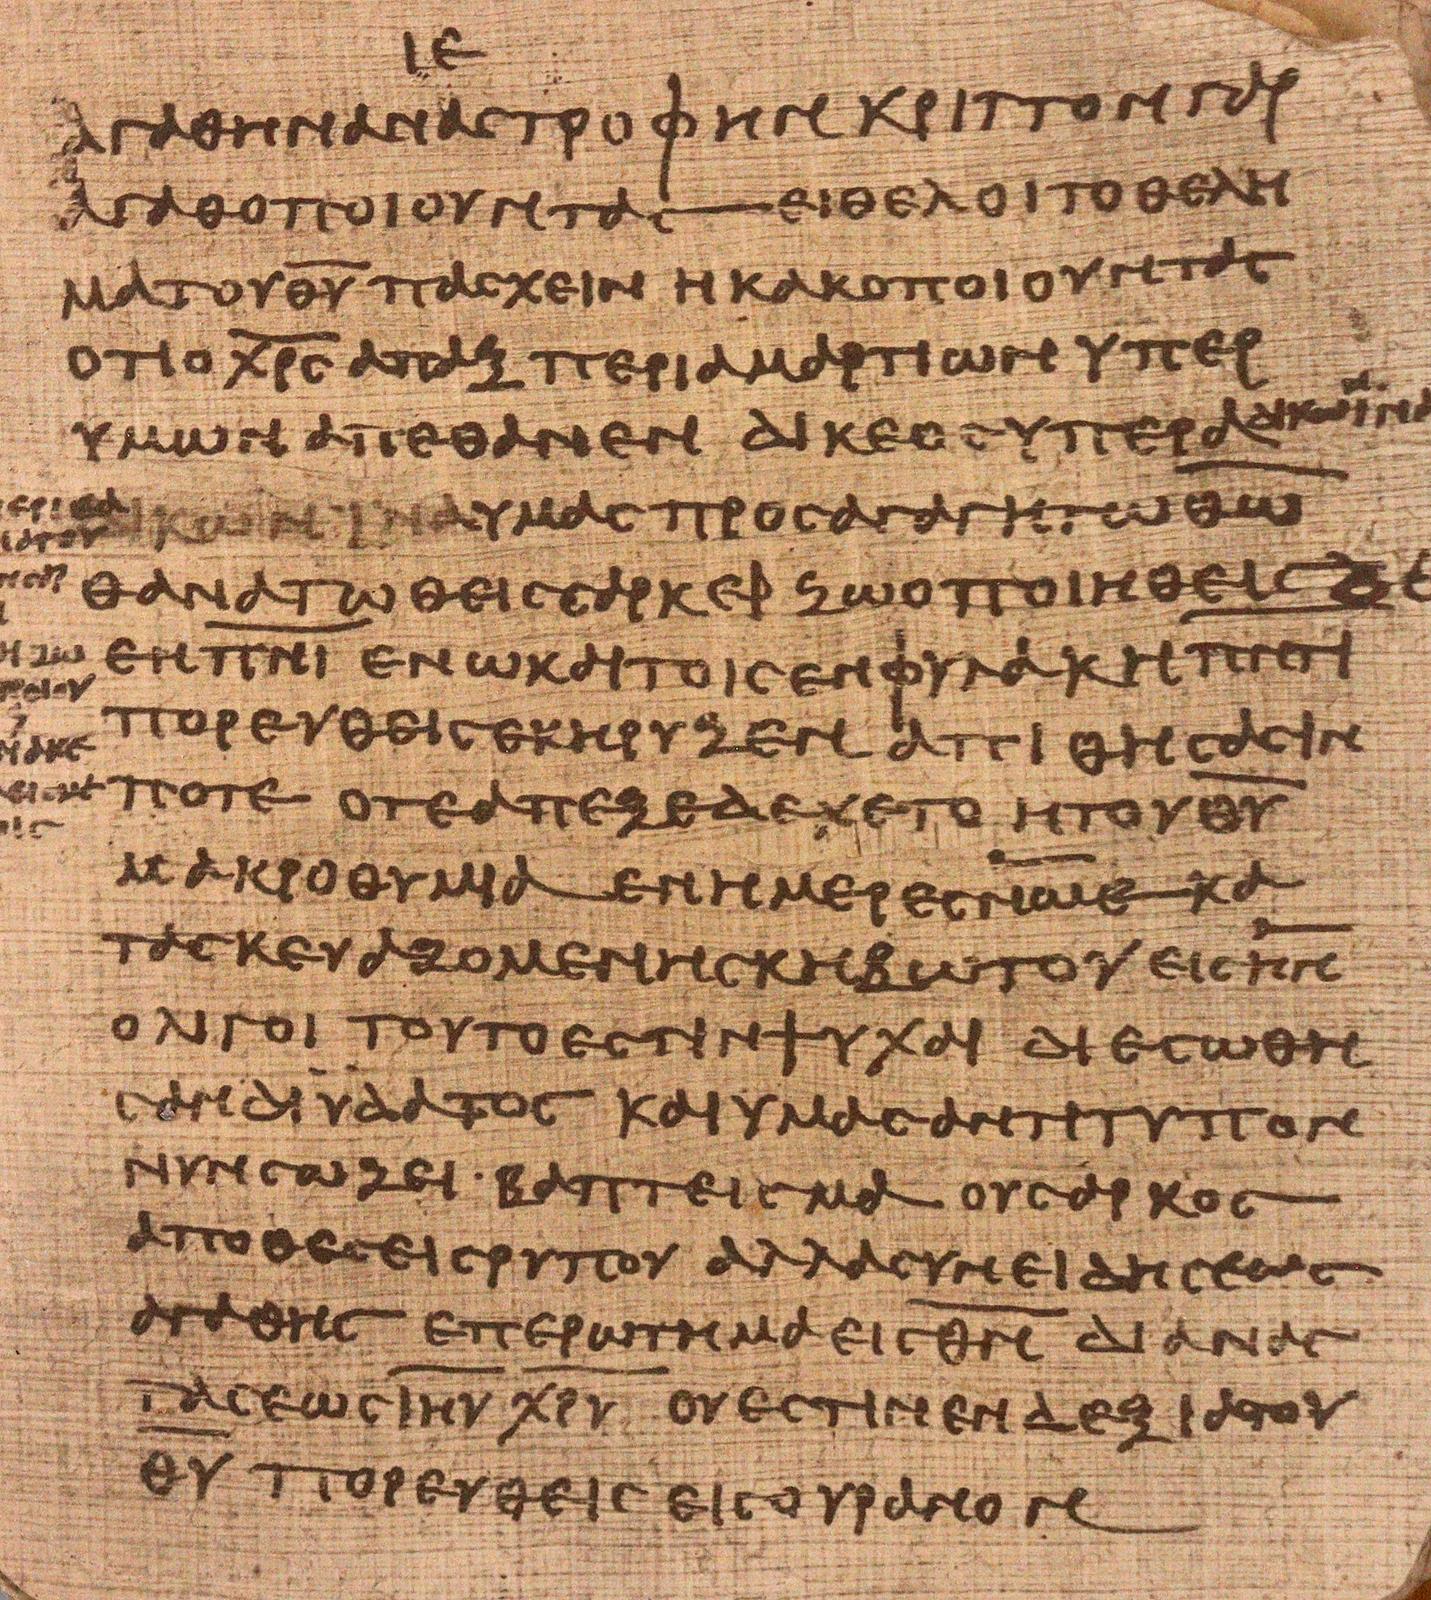 ιε
αγαθην αναστροφην κριττον γαρ
αγαθοποιουντας ει θελοι το θελη
μα του θυ πασχειν η κακοποιουντας
οτι ο χρς απαξ περι αμαρτιων υπερ
υμων απεθανεν δικεος υπερ αδικων ινα
υμας προσαγαγη τω θω
θανατωθεις σαρκει ζωοποιηθεις δε
εν πνι εν ω και τοις εν φυλακη πνι
πορευθεις εκηρυξεν απιθησασιν
ποτε οτε απεξεδεχετο η του θυ
μακροθυμια εν ημερες νωε κα
τασκευαζομενης κηβωτου εις ην
ολιγοι τουτο εστιν ψυχαι διεσωθη
σαν δι ϋδατος και υμας αντιτυπον
νυν σωζει · βαπτεισμα ου σαρκος
αποθεσεις ρυπου αλλα συνειδησεως
αγαθης επερωτημα εις θν δι ανασ
τασεως ιηυ χρυ ου εστιν εν δεξια του
θυ πορευθεις εις ουρανον